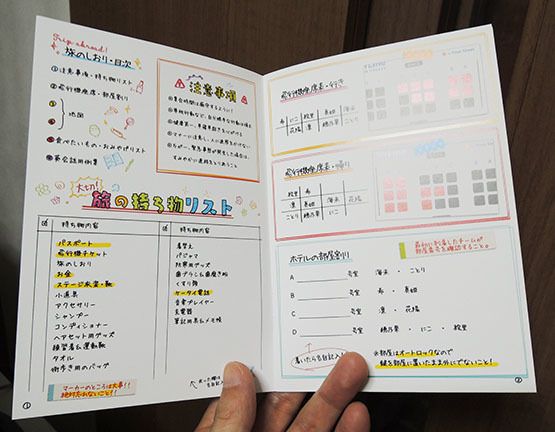 Trip abroad!
旅のしおり・目次
①注意事項・持ち物リスト
②飛行機座席・部屋割り
③
④
地図
⑥食べたいもの・おみやげリスト
英会話用例集
注意事項
大切!
旅の持ち物リスト
持ち物内容
パスポート
飛行機チケット
旅のしおり
お金
ステージ衣裳・靴
小道具
アクセサリー
シャンプー
コンディショナー
ヘアセット用グッズ
練習着&運動靴
タオル
街歩き用のバッグ
マーカーのところは大事!!
絶対忘れないこと!!
①
持ち物内容
着替え
パジャマ
防寒用グッズ
歯ブラシ&歯磨き粉
くすり類
ケータイ電話
音楽プレイヤー
充電器
筆記用具&メモ帳
飛行機座席表・行き
飛行機座席表・帰り
ホテルの部屋割り
最初に到着したチームが
部屋番号を確認すること。
A 号室 海未・ことり
B 号室 希・真姫
C 号室 凛・花陽
D 号室 穂乃果・にこ・絵里
着いたら各自記入!
※部屋はオートロックなので
鍵を部屋に置いたまま外にでないこと!
②